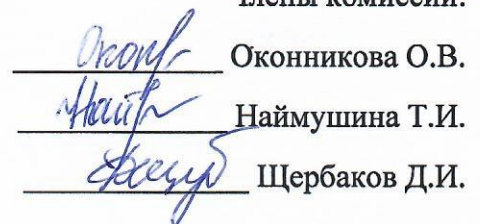 Члены комиссии:
Оконникова О.В.
Наймушина Т.И.
Щербаков Д.И.